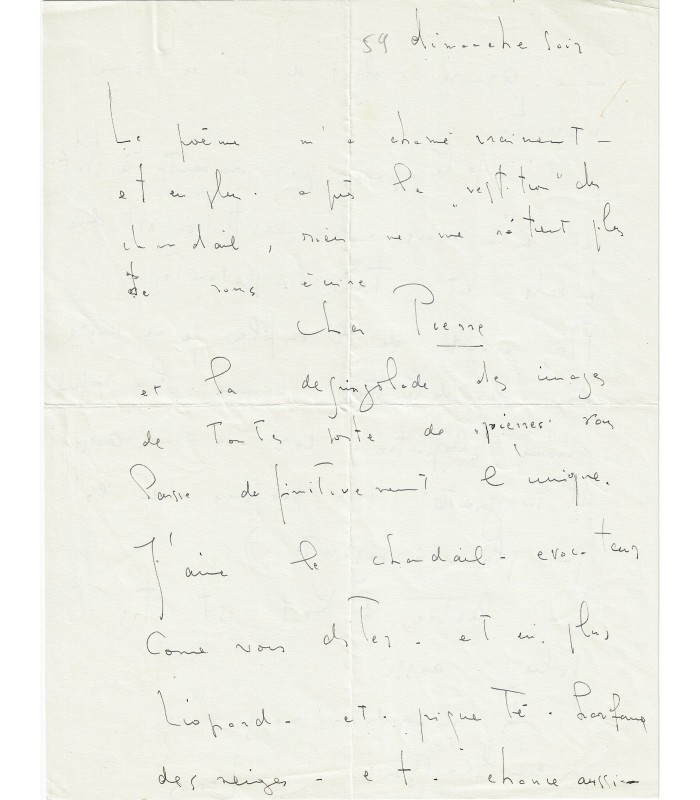 59 dimanche soir
Le poème m'a charmé vraiment -
et en plus. après la du
chandail, rien ne me retient plus
de vous écrire
Cher Pierre
et la dégringolade des images
de toutes sorte de "pierres" vous
laisse définitivement l'unique.
J'aime le chandail - evocateur
Come vous dites - et en plus
Léopard - et - piqueté - harfang
des neiges - et - chance aussi -